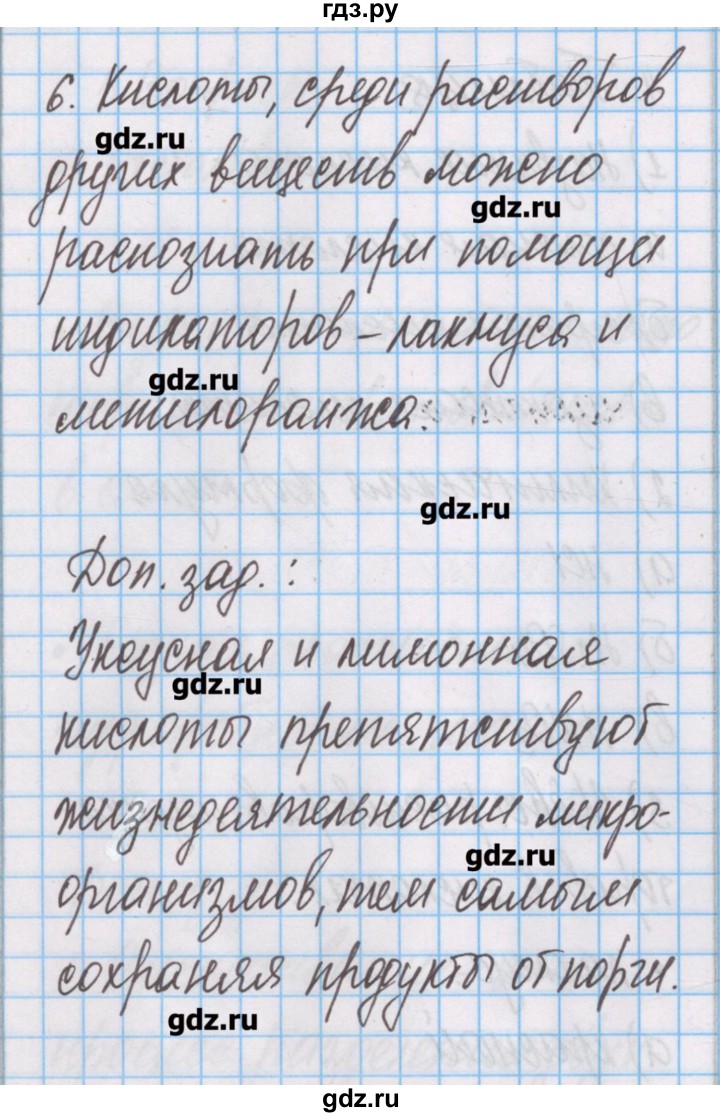 гдз.ру
6. Кислоты, среди растворов
gdz.ru
других веществ можно
gdz.ru
распознать при помощи
индикаторов – лакмуса и
gdz.ru
метилоранжа.
gdz.ru
Доп. зад. :
Уксусная и лимонная
gdz.ru
кислоты препятствуют
жизнедеятельности микро-
gdz.ru
организмов, тем самым
сохраняя продукты от порги.
gdz.ru
gdz.ru